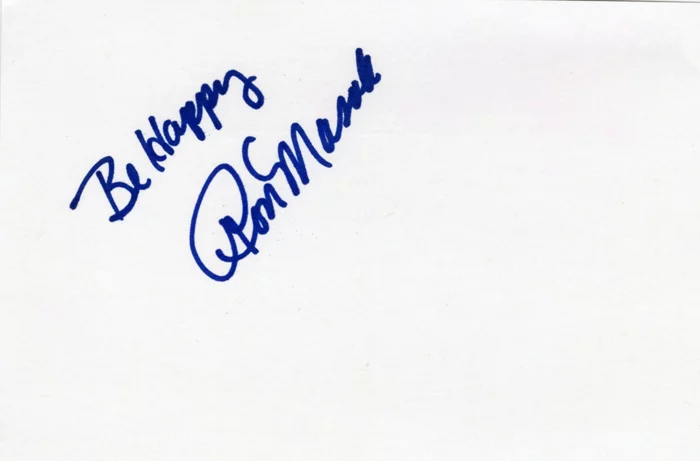 Be Happy
Ron Masak